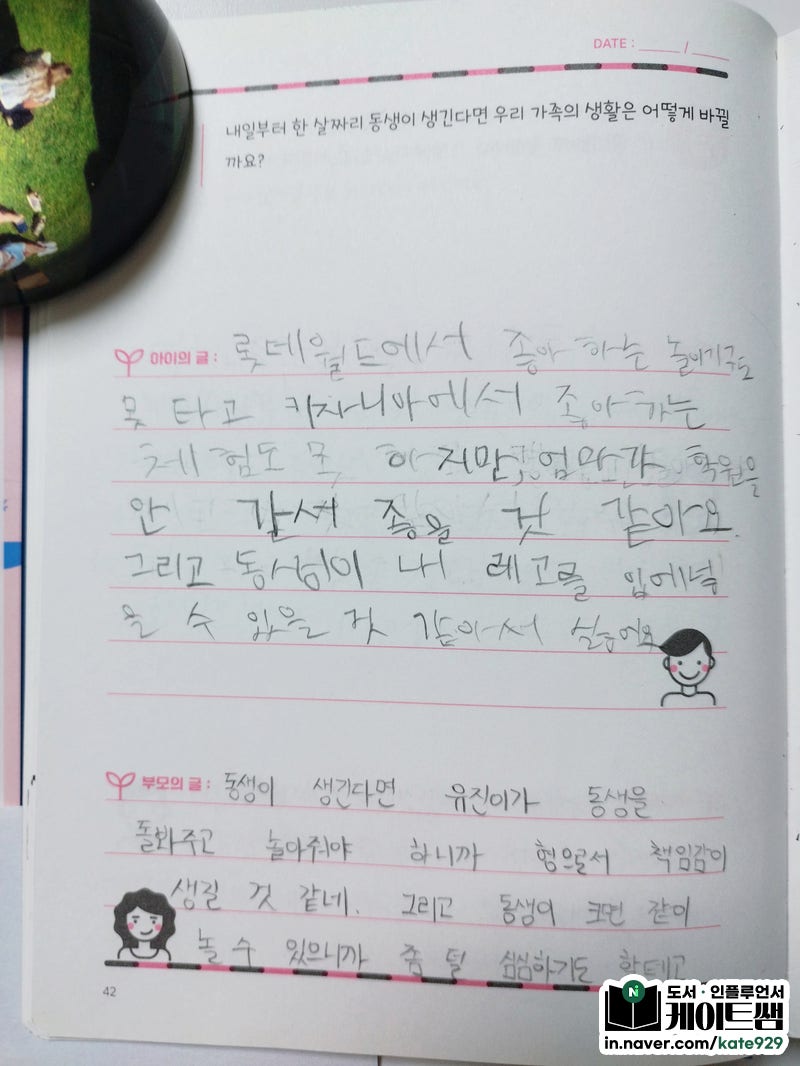 DATE : ____ / ____
내일부터 한 살짜리 동생이 생긴다면 우리 가족의 생활은 어떻게 바뀔
까요?
아이의 글 : 롯데월드에서 좋아 하는 놀이기구도
못 타고 키자니아에서 좋아 하는
체험도 못 하지만, 엄마가 학원을
안 갈서 좋을 것 같아요.
그리고 동생이 내 레고를 입에넣
을 수 있을 것 같아서 싫어요
부모의 글 : 동생이 생긴다면 유진이가 동생을
돌봐주고 놀아줘야 하니까 형으로서 책임감이
생길 것 같네. 그리고 동생이 크면 같이
놀 수 있으니까 좀 덜 심심하기도 할테고
42
도서·인플루언서
N 케이트쌤
in.naver.com/kate929